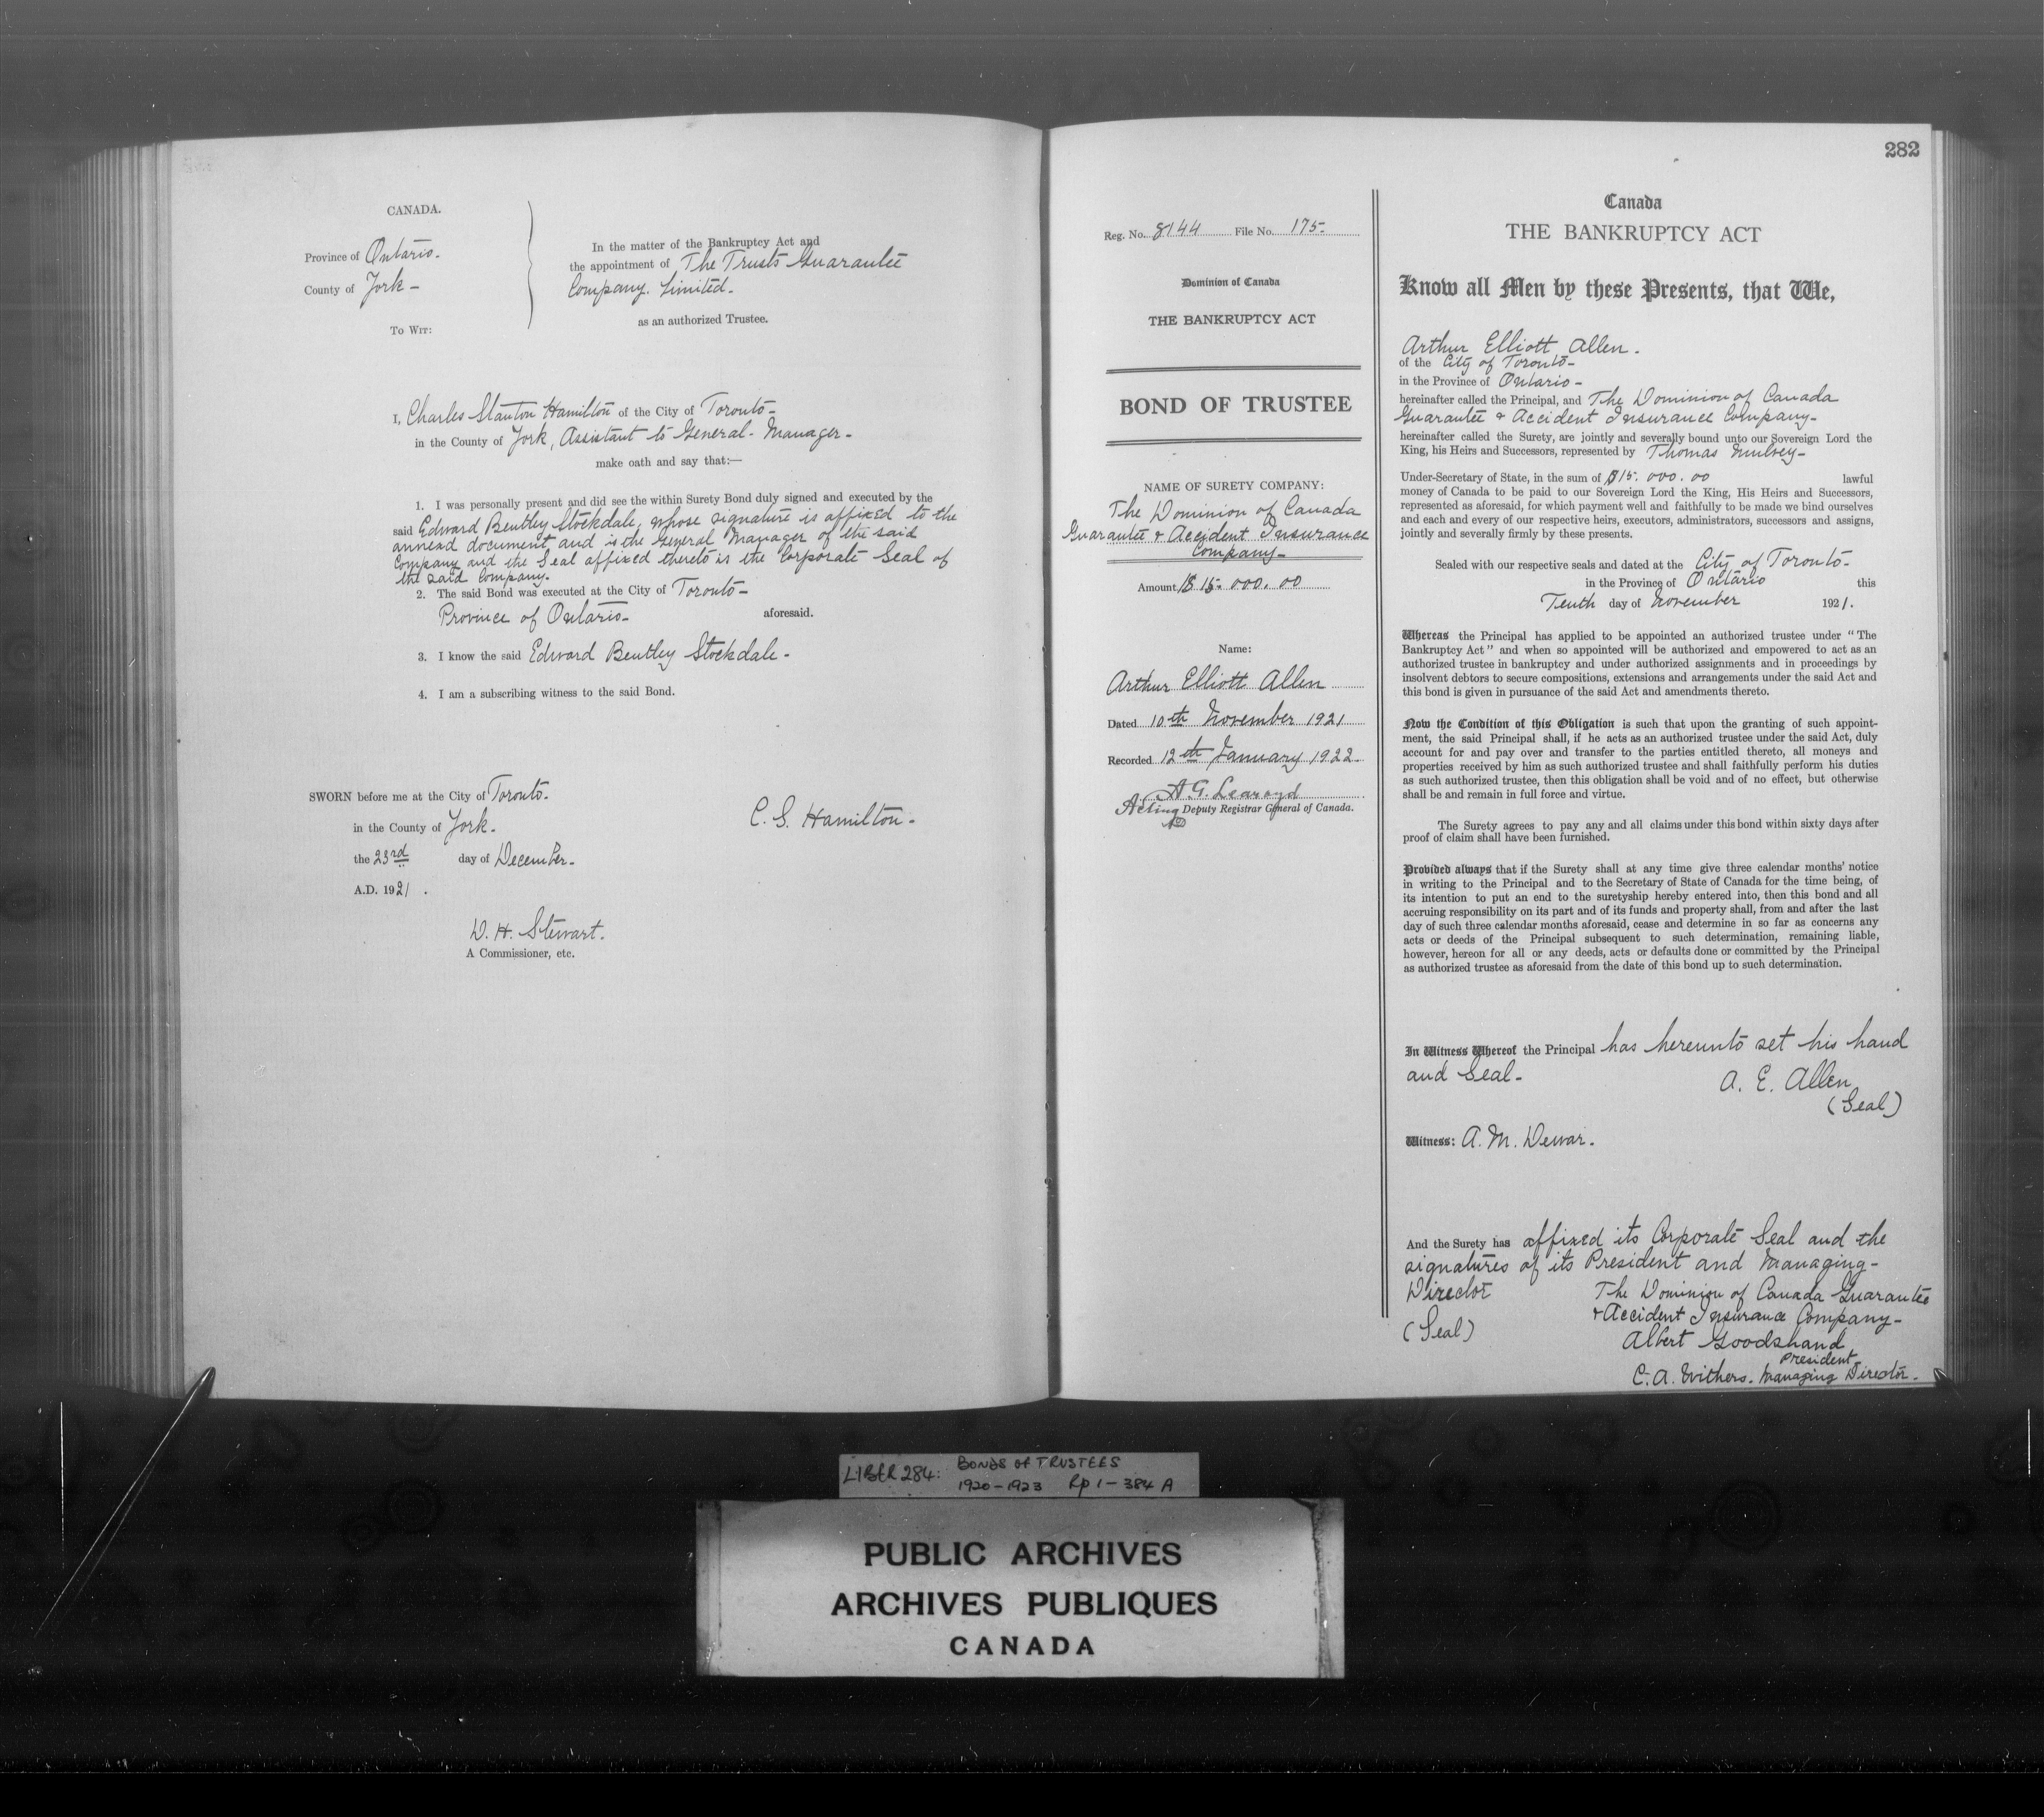 CANADA.
Province of Ontario.
County of York -
To Wit:
In the matter of the Bankruptcy Act and
the appointment of The Trusts Guarantee
Company. Limited.
as an authorized Trustee.
I, Charles Stanton Hamilton of the City of Toronto -
in the County of York, Assistant to General-Manager -
make oath and say that:—
1. I was personally present and did see the within Surety Bond duly signed and executed by the
said Edward Bentley Stockdale, whose signature is affixed to the
annexed document and is the General Manager of the said
Company and the Seal affixed thereto is the Corporate Seal of
the said Company.
2. The said Bond was executed at the City of Toronto -
Province of Ontario - aforesaid.
3. I know the said Edward Bentley Stockdale -
4. I am a subscribing witness to the said Bond.
SWORN before me at the City of Toronto.
in the County of York.
the 23rd day of December.
A.D. 1921.
C. S. Hamilton.
W. H. Stewart.
A Commissioner, etc.
Reg. No. 8144 File No. 175-
Dominion of Canada
THE BANKRUPTCY ACT
BOND OF TRUSTEE
NAME OF SURETY COMPANY:
The Dominion of Canada
Guarantee & Accident Insurance
Company -
Amount $15.000.00
Name:
Arthur Elliott Allen
Dated 10th November 1921
Recorded 12th January 1922.
A. G. Learoyd
Acting Deputy Registrar General of Canada.
282
Canada
THE BANKRUPTCY ACT
Know all Men by these Presents, that We,
Arthur Elliott Allen.
of the City of Toronto -
in the Province of Ontario -
hereinafter called the Principal, and The Dominion of Canada
Guarantee & Accident Insurance Company -
hereinafter called the Surety, are jointly and severally bound unto our Sovereign Lord the
King, his Heirs and Successors, represented by Thomas Mulvey -
Under-Secretary of State, in the sum of $15.000.00 lawful
money of Canada to be paid to our Sovereign Lord the King, His Heirs and Successors,
represented as aforesaid, for which payment well and faithfully to be made we bind ourselves
and each and every of our respective heirs, executors, administrators, successors and assigns,
jointly and severally firmly by these presents.
Sealed with our respective seals and dated at the City of Toronto -
in the Province of Ontario this
Tenth day of November 1921.
Whereas the Principal has applied to be appointed an authorized trustee under "The
Bankruptcy Act" and when so appointed will be authorized and empowered to act as an
authorized trustee in bankruptcy and under authorized assignments and in proceedings by
insolvent debtors to secure compositions, extensions and arrangements under the said Act and
this bond is given in pursuance of the said Act and amendments thereto.
Now the Condition of this Obligation is such that upon the granting of such appoint-
ment, the said Principal shall, if he acts as an authorized trustee under the said Act, duly
account for and pay over and transfer to the parties entitled thereto, all moneys and
properties received by him as such authorized trustee and shall faithfully perform his duties
as such authorized trustee, then this obligation shall be void and of no effect, but otherwise
shall be and remain in full force and virtue.
The Surety agrees to pay any and all claims under this bond within sixty days after
proof of claim shall have been furnished.
Provided always that if the Surety shall at any time give three calendar months' notice
in writing to the Principal and to the Secretary of State of Canada for the time being, of
its intention to put an end to the suretyship hereby entered into, then this bond and all
accruing responsibility on its part and of its funds and property shall, from and after the last
day of such three calendar months aforesaid, cease and determine in so far as concerns any
acts or deeds of the Principal subsequent to such determination, remaining liable,
however, hereon for all or any deeds, acts or defaults done or committed by the Principal
as authorized trustee as aforesaid from the date of this bond up to such determination.
In Witness Whereof the Principal has hereunto set his hand
and Seal -
A. E. Allen
(Seal)
Witness: A. M. Dewar.
And the Surety has affixed its Corporate Seal and the
signatures of its President and Managing-
Director
(Seal)
The Dominion of Canada Guarantee
& Accident Insurance Company -
Albert
President
C. A. Withers. Managing Director.
LIBER 284: BONDS OF TRUSTEES
1920-1923 Rp 1-384 A
PUBLIC ARCHIVES
ARCHIVES PUBLIQUES
CANADA